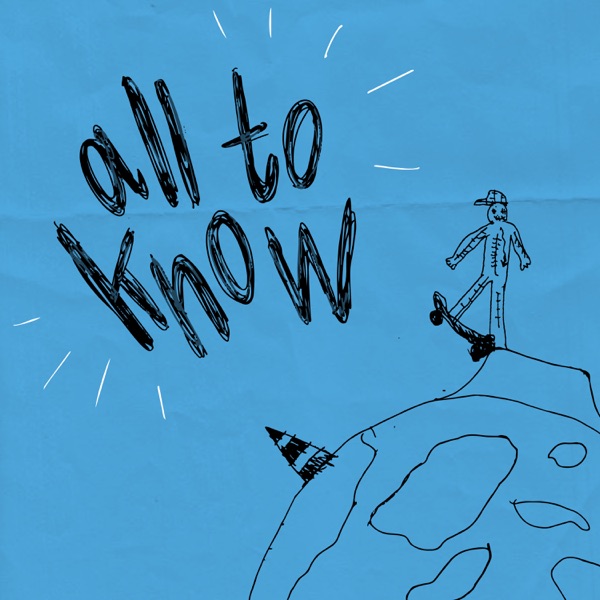 all to
know